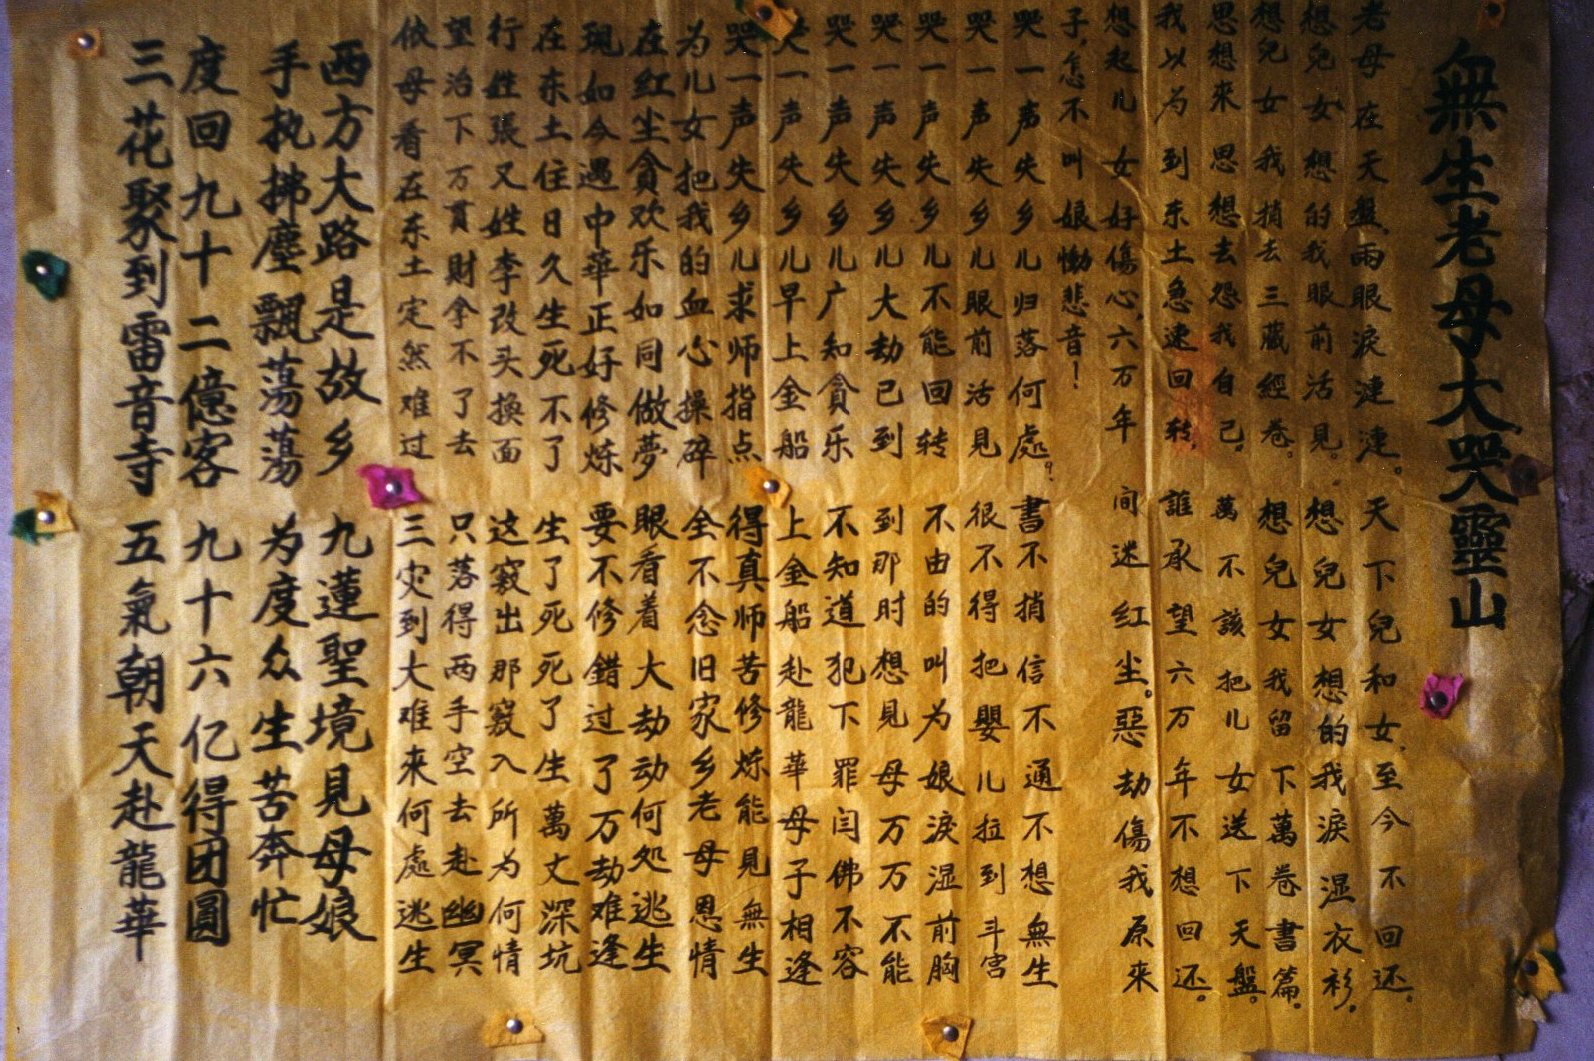 無生老母大哭靈山
老母在天盤兩眼淚漣漣。天下兒和女,至今不回还。
想兒女想的我眼前活見。想兒女想的我淚湿衣衫。
想兒女我捎去三藏經卷。想兒女我留下萬卷書篇。
思想來思想去怨我自己。萬不該把儿女送下天盤。
我以为到东土急速回转。誰承望六万年不想回还。
想起儿女好傷心,六万年间迷红尘。惡劫傷我原來
子,怎不叫娘慟悲音!
哭一声失乡儿归落何處。書不捎信不通不想無生
哭一声失乡儿眼前活見很不得把嬰儿拉到斗宫
哭一声失乡儿不能回转不由的叫为娘淚湿前胸
哭一声失乡儿大劫已到到那时想見母万万不能
哭一声失乡儿广知貪乐不知道犯下罪闫佛不容
哭一声失乡儿早上金船上金船赴龍華母子相逢
哭一声失乡儿求师指点得真师苦修炼能見無生
为儿女把我的血心操碎全不念旧家乡老母恩情
在红尘貪欢乐如同做夢眼看着大劫动何处逃生
现如今遇中華正好修炼要不修錯过了万劫难逢
在东土住日久生死不了生了死死了生萬丈深坑
行姓張又姓李改头換面这竅出那竅入所为何情
望治下万貫財拿不了去只落得两手空去赴幽冥
依母看在东土定然难过三灾到大难来何處逃生
西方大路是故乡九蓮聖境見母娘
手执拂塵飄蕩蕩为度众生苦奔忙
度回九十二億客九十六亿得团圓
三花聚到雷音寺五氣朝天赴龍華